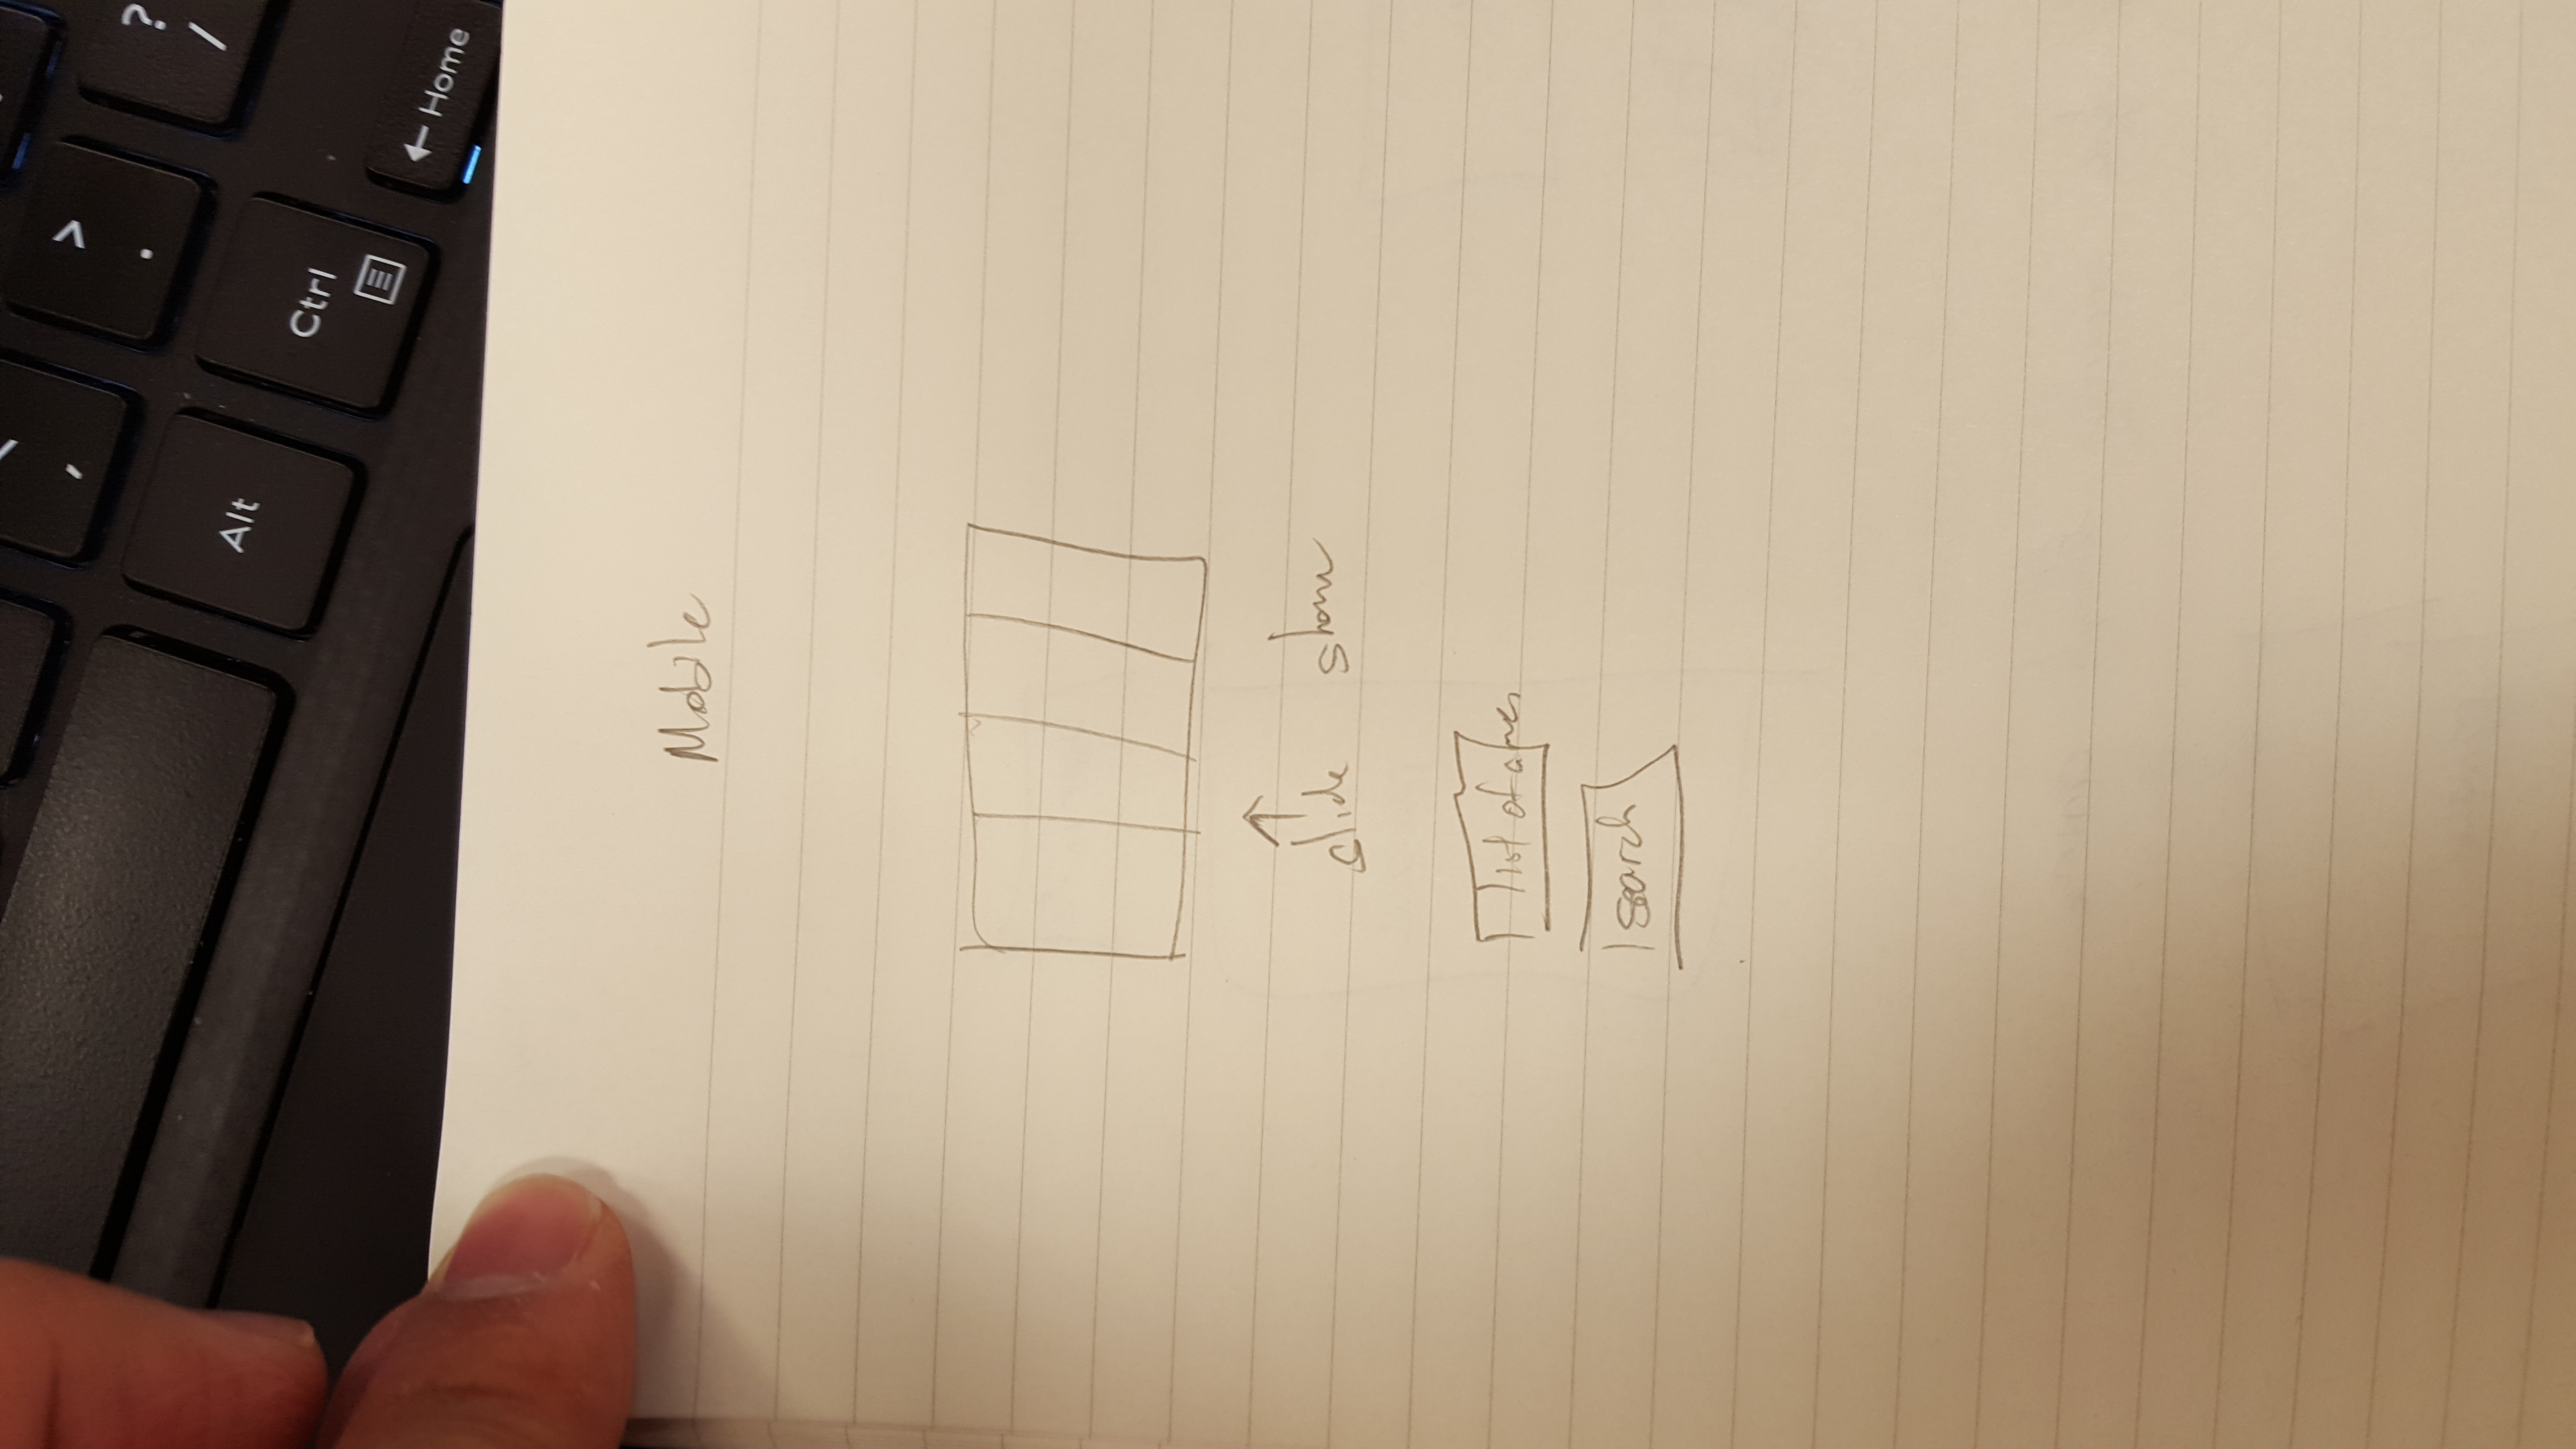 ,
>
.
?
/
Alt
Ctrl
← Home
Mobile
slide show
list of
search